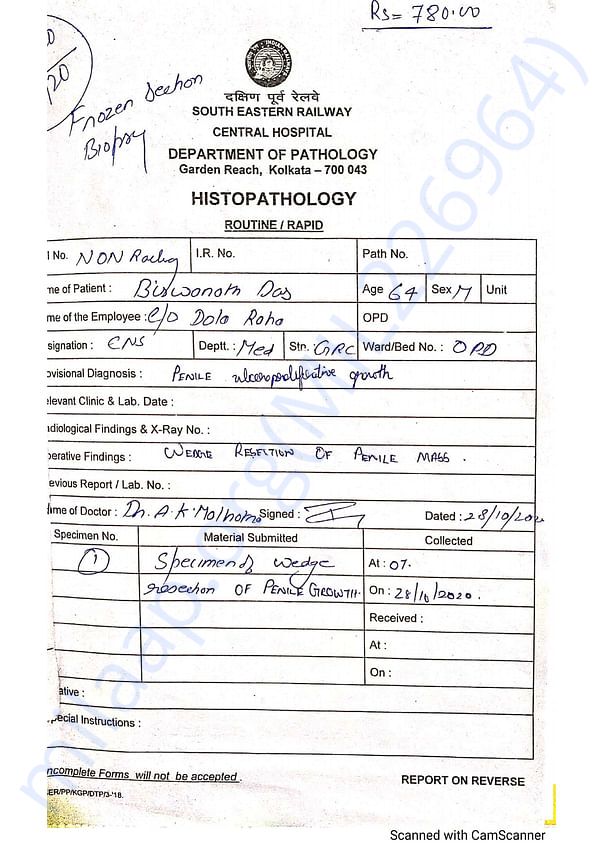 Rs= 780.00
20
Frozen Section
Biopsy
दक्षिण पूर्व रेलवे
SOUTH EASTERN RAILWAY
CENTRAL HOSPITAL
DEPARTMENT OF PATHOLOGY
Garden Reach, Kolkata – 700 043
HISTOPATHOLOGY
ROUTINE / RAPID
No. NON Railway I.R. No. Path No.
me of Patient : Biswanath Das Age 64 Sex M Unit
me of the Employee : C/O Dola Raha OPD
signation : CNS Deptt. : Med Stn. GRC Ward/Bed No. : OPD
ovisional Diagnosis : PENILE ulceroproliferative growth
elevant Clinic & Lab. Date :
adiological Findings & X-Ray No. :
perative Findings : WEDGE RESECTION OF PENILE MASS.
evious Report / Lab. No. :
ame of Doctor : Dr. A.K Malhotra Signed : Dated : 28/10/202
Specimen No. Material Submitted Collected
1 Specimen of wedge At : 07.
resection OF PENILE GROWTH. On : 28/10/2020.
Received :
At :
On :
ative :
pecial Instructions :
ncomplete Forms will not be accepted. REPORT ON REVERSE
SER/PP/KGP/DTP/3-'18.
milaap.org(MLL226964)
Scanned with CamScanner